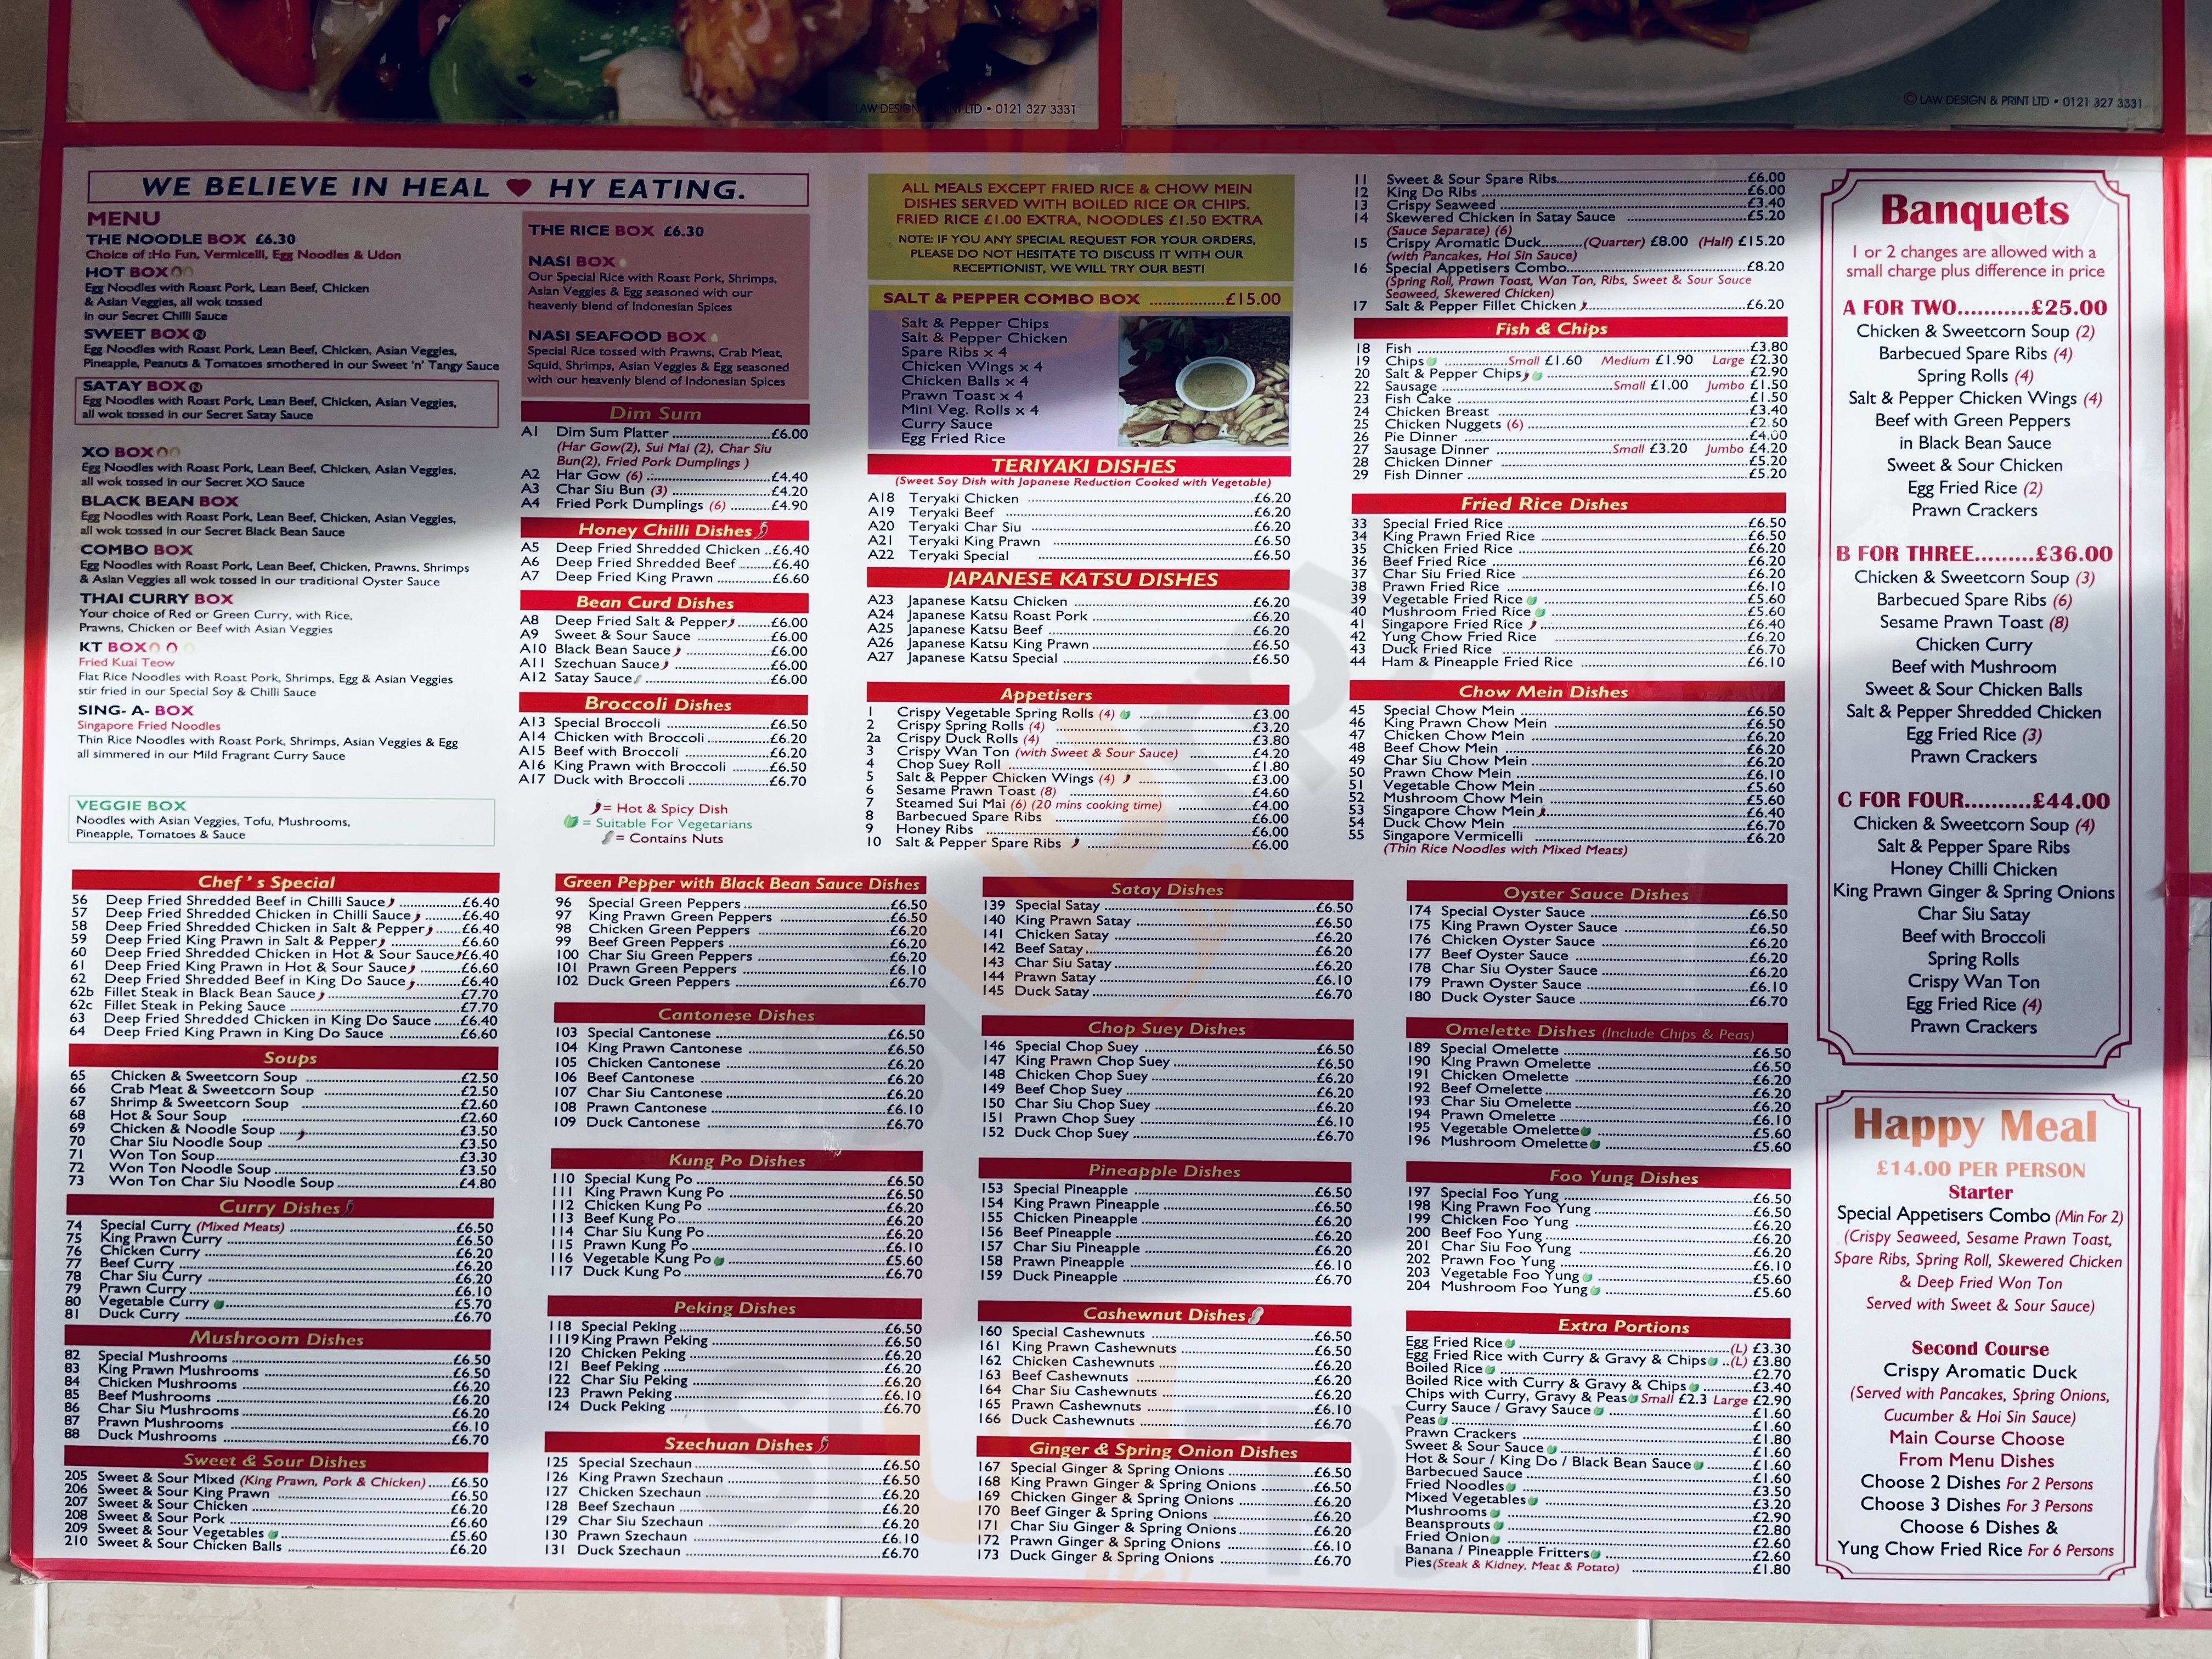 LAW DESIGN & PRINT LTD • 0121 327 3331
© LAW DESIGN & PRINT LTD • 0121 327 3331
WE BELIEVE IN HEAL ♥ HY EATING.
MENU
THE NOODLE BOX £6.30
Choice of :Ho Fun, Vermicelli, Egg Noodles & Udon
HOT BOX
Egg Noodles with Roast Pork, Lean Beef, Chicken
& Asian Veggies, all wok tossed
in our Secret Chilli Sauce
SWEET BOX N
Egg Noodles with Roast Pork, Lean Beef, Chicken, Asian Veggies,
Pineapple, Peanuts & Tomatoes smothered in our Sweet 'n' Tangy Sauce
SATAY BOX N
Egg Noodles with Roast Pork, Lean Beef, Chicken, Asian Veggies,
all wok tossed in our Secret Satay Sauce
XO BOX
Egg Noodles with Roast Pork, Lean Beef, Chicken, Asian Veggies,
all wok tossed in our Secret XO Sauce
BLACK BEAN BOX
Egg Noodles with Roast Pork, Lean Beef, Chicken, Asian Veggies,
all wok tossed in our Secret Black Bean Sauce
COMBO BOX
Egg Noodles with Roast Pork, Lean Beef, Chicken, Prawns, Shrimps
& Asian Veggies all wok tossed in our traditional Oyster Sauce
THAI CURRY BOX
Your choice of Red or Green Curry, with Rice,
Prawns, Chicken or Beef with Asian Veggies
KT BOX
Fried Kuai Teow
Flat Rice Noodles with Roast Pork, Shrimps, Egg & Asian Veggies
stir fried in our Special Soy & Chilli Sauce
SING- A- BOX
Singapore Fried Noodles
Thin Rice Noodles with Roast Pork, Shrimps, Asian Veggies & Egg
all simmered in our Mild Fragrant Curry Sauce
VEGGIE BOX
Noodles with Asian Veggies, Tofu, Mushrooms,
Pineapple, Tomatoes & Sauce
THE RICE BOX £6.30
NASI BOX
Our Special Rice with Roast Pork, Shrimps,
Asian Veggies & Egg seasoned with our
heavenly blend of Indonesian Spices
NASI SEAFOOD BOX
Special Rice tossed with Prawns, Crab Meat,
Squid, Shrimps, Asian Veggies & Egg seasoned
with our heavenly blend of Indonesian Spices
Dim Sum
A1 Dim Sum Platter £6.00
(Har Gow(2), Sui Mai (2), Char Siu
Bun(2), Fried Pork Dumplings )
A2 Har Gow (6) £4.40
A3 Char Siu Bun (3) £4.20
A4 Fried Pork Dumplings (6) £4.90
Honey Chilli Dishes
A5 Deep Fried Shredded Chicken £6.40
A6 Deep Fried Shredded Beef £6.40
A7 Deep Fried King Prawn £6.60
Bean Curd Dishes
A8 Deep Fried Salt & Pepper £6.00
A9 Sweet & Sour Sauce £6.00
A10 Black Bean Sauce £6.00
A11 Szechuan Sauce £6.00
A12 Satay Sauce £6.00
Broccoli Dishes
A13 Special Broccoli £6.50
A14 Chicken with Broccoli £6.20
A15 Beef with Broccoli £6.20
A16 King Prawn with Broccoli £6.50
A17 Duck with Broccoli £6.70
= Hot & Spicy Dish
= Suitable For Vegetarians
= Contains Nuts
ALL MEALS EXCEPT FRIED RICE & CHOW MEIN
DISHES SERVED WITH BOILED RICE OR CHIPS.
FRIED RICE £1.00 EXTRA, NOODLES £1.50 EXTRA
NOTE: IF YOU ANY SPECIAL REQUEST FOR YOUR ORDERS,
PLEASE DO NOT HESITATE TO DISCUSS IT WITH OUR
RECEPTIONIST, WE WILL TRY OUR BEST!
SALT & PEPPER COMBO BOX £15.00
Salt & Pepper Chips
Salt & Pepper Chicken
Spare Ribs x 4
Chicken Wings x 4
Chicken Balls x 4
Prawn Toast x 4
Mini Veg. Rolls x 4
Curry Sauce
Egg Fried Rice
TERIYAKI DISHES
(Sweet Soy Dish with Japanese Reduction Cooked with Vegetable)
A18 Teryaki Chicken £6.20
A19 Teryaki Beef £6.20
A20 Teryaki Char Siu £6.20
A21 Teryaki King Prawn £6.50
A22 Teryaki Special £6.50
JAPANESE KATSU DISHES
A23 Japanese Katsu Chicken £6.20
A24 Japanese Katsu Roast Pork £6.20
A25 Japanese Katsu Beef £6.20
A26 Japanese Katsu King Prawn £6.50
A27 Japanese Katsu Special £6.50
Appetisers
1 Crispy Vegetable Spring Rolls (4) £3.00
2 Crispy Spring Rolls (4) £3.20
2a Crispy Duck Rolls (4) £3.80
3 Crispy Wan Ton (with Sweet & Sour Sauce) £4.20
4 Chop Suey Roll £1.80
5 Salt & Pepper Chicken Wings (4) £3.00
6 Sesame Prawn Toast (8) £4.60
7 Steamed Sui Mai (6) (20 mins cooking time) £4.00
8 Barbecued Spare Ribs £6.00
9 Honey Ribs £6.00
10 Salt & Pepper Spare Ribs £6.00
11 Sweet & Sour Spare Ribs £6.00
12 King Do Ribs £6.00
13 Crispy Seaweed £3.40
14 Skewered Chicken in Satay Sauce £5.20
(Sauce Separate) (6)
15 Crispy Aromatic Duck (Quarter) £8.00 (Half) £15.20
(with Pancakes, Hoi Sin Sauce)
16 Special Appetisers Combo £8.20
(Spring Roll, Prawn Toast, Wan Ton, Ribs, Sweet & Sour Sauce
Seaweed, Skewered Chicken)
17 Salt & Pepper Fillet Chicken £6.20
Fish & Chips
18 Fish £3.80
19 Chips Small £1.60 Medium £1.90 Large £2.30
20 Salt & Pepper Chips £2.90
22 Sausage Small £1.00 Jumbo £1.50
23 Fish Cake £1.50
24 Chicken Breast £3.40
25 Chicken Nuggets (6) £2.60
26 Pie Dinner £4.00
27 Sausage Dinner Small £3.20 Jumbo £4.20
28 Chicken Dinner £5.20
29 Fish Dinner £5.20
Fried Rice Dishes
33 Special Fried Rice £6.50
34 King Prawn Fried Rice £6.50
35 Chicken Fried Rice £6.20
36 Beef Fried Rice £6.20
37 Char Siu Fried Rice £6.20
38 Prawn Fried Rice £6.10
39 Vegetable Fried Rice £5.60
40 Mushroom Fried Rice £5.60
41 Singapore Fried Rice £6.40
42 Yung Chow Fried Rice £6.20
43 Duck Fried Rice £6.70
44 Ham & Pineapple Fried Rice £6.10
Chow Mein Dishes
45 Special Chow Mein £6.50
46 King Prawn Chow Mein £6.50
47 Chicken Chow Mein £6.20
48 Beef Chow Mein £6.20
49 Char Siu Chow Mein £6.20
50 Prawn Chow Mein £6.10
51 Vegetable Chow Mein £5.60
52 Mushroom Chow Mein £5.60
53 Singapore Chow Mein £6.40
54 Duck Chow Mein £6.70
55 Singapore Vermicelli £6.20
(Thin Rice Noodles with Mixed Meats)
Chef 's Special
56 Deep Fried Shredded Beef in Chilli Sauce £6.40
57 Deep Fried Shredded Chicken in Chilli Sauce £6.40
58 Deep Fried Shredded Chicken in Salt & Pepper £6.40
59 Deep Fried King Prawn in Salt & Pepper £6.60
60 Deep Fried Shredded Chicken in Hot & Sour Sauce £6.40
61 Deep Fried King Prawn in Hot & Sour Sauce £6.60
62 Deep Fried Shredded Beef in King Do Sauce £6.40
62b Fillet Steak in Black Bean Sauce £7.70
62c Fillet Steak in Peking Sauce £7.70
63 Deep Fried Shredded Chicken in King Do Sauce £6.40
64 Deep Fried King Prawn in King Do Sauce £6.60
Soups
65 Chicken & Sweetcorn Soup £2.50
66 Crab Meat & Sweetcorn Soup £2.50
67 Shrimp & Sweetcorn Soup £2.60
68 Hot & Sour Soup £2.60
69 Chicken & Noodle Soup £3.50
70 Char Siu Noodle Soup £3.50
71 Won Ton Soup £3.30
72 Won Ton Noodle Soup £3.50
73 Won Ton Char Siu Noodle Soup £4.80
Curry Dishes
74 Special Curry (Mixed Meats) £6.50
75 King Prawn Curry £6.50
76 Chicken Curry £6.20
77 Beef Curry £6.20
78 Char Siu Curry £6.20
79 Prawn Curry £6.10
80 Vegetable Curry £5.70
81 Duck Curry £6.70
Mushroom Dishes
82 Special Mushrooms £6.50
83 King Prawn Mushrooms £6.50
84 Chicken Mushrooms £6.20
85 Beef Mushrooms £6.20
86 Char Siu Mushrooms £6.20
87 Prawn Mushrooms £6.10
88 Duck Mushrooms £6.70
Sweet & Sour Dishes
205 Sweet & Sour Mixed (King Prawn, Pork & Chicken) £6.50
206 Sweet & Sour King Prawn £6.50
207 Sweet & Sour Chicken £6.20
208 Sweet & Sour Pork £6.60
209 Sweet & Sour Vegetables £5.60
210 Sweet & Sour Chicken Balls £6.20
Green Pepper with Black Bean Sauce Dishes
96 Special Green Peppers £6.50
97 King Prawn Green Peppers £6.50
98 Chicken Green Peppers £6.20
99 Beef Green Peppers £6.20
100 Char Siu Green Peppers £6.20
101 Prawn Green Peppers £6.10
102 Duck Green Peppers £6.70
Cantonese Dishes
103 Special Cantonese £6.50
104 King Prawn Cantonese £6.50
105 Chicken Cantonese £6.20
106 Beef Cantonese £6.20
107 Char Siu Cantonese £6.20
108 Prawn Cantonese £6.10
109 Duck Cantonese £6.70
Kung Po Dishes
110 Special Kung Po £6.50
111 King Prawn Kung Po £6.50
112 Chicken Kung Po £6.20
113 Beef Kung Po £6.20
114 Char Siu Kung Po £6.20
115 Prawn Kung Po £6.10
116 Vegetable Kung Po £5.60
117 Duck Kung Po £6.70
Peking Dishes
118 Special Peking £6.50
1119 King Prawn Peking £6.50
120 Chicken Peking £6.20
121 Beef Peking £6.20
122 Char Siu Peking £6.20
123 Prawn Peking £6.10
124 Duck Peking £6.70
Szechuan Dishes
125 Special Szechuan £6.50
126 King Prawn Szechaun £6.50
127 Chicken Szechaun £6.20
128 Beef Szechaun £6.20
129 Char Siu Szechaun £6.20
130 Prawn Szechaun £6.10
131 Duck Szechaun £6.70
Satay Dishes
139 Special Satay £6.50
140 King Prawn Satay £6.50
141 Chicken Satay £6.20
142 Beef Satay £6.20
143 Char Siu Satay £6.20
144 Prawn Satay £6.10
145 Duck Satay £6.70
Chop Suey Dishes
146 Special Chop Suey £6.50
147 King Prawn Chop Suey £6.50
148 Chicken Chop Suey £6.20
149 Beef Chop Suey £6.20
150 Char Siu Chop Suey £6.20
151 Prawn Chop Suey £6.10
152 Duck Chop Suey £6.70
Pineapple Dishes
153 Special Pineapple £6.50
154 King Prawn Pineapple £6.50
155 Chicken Pineapple £6.20
156 Beef Pineapple £6.20
157 Char Siu Pineapple £6.20
158 Prawn Pineapple £6.10
159 Duck Pineapple £6.70
Cashewnut Dishes
160 Special Cashewnuts £6.50
161 King Prawn Cashewnuts £6.50
162 Chicken Cashewnuts £6.20
163 Beef Cashewnuts £6.20
164 Char Siu Cashewnuts £6.20
165 Prawn Cashewnuts £6.10
166 Duck Cashewnuts £6.70
Ginger & Spring Onion Dishes
167 Special Ginger & Spring Onions £6.50
168 King Prawn Ginger & Spring Onions £6.50
169 Chicken Ginger & Spring Onions £6.20
170 Beef Ginger & Spring Onions £6.20
171 Char Siu Ginger & Spring Onions £6.20
172 Prawn Ginger & Spring Onions £6.10
173 Duck Ginger & Spring Onions £6.70
Oyster Sauce Dishes
174 Special Oyster Sauce £6.50
175 King Prawn Oyster Sauce £6.50
176 Chicken Oyster Sauce £6.20
177 Beef Oyster Sauce £6.20
178 Char Siu Oyster Sauce £6.20
179 Prawn Oyster Sauce £6.10
180 Duck Oyster Sauce £6.70
Omelette Dishes (Include Chips & Peas)
189 Special Omelette £6.50
190 King Prawn Omelette £6.50
191 Chicken Omelette £6.20
192 Beef Omelette £6.20
193 Char Siu Omelette £6.20
194 Prawn Omelette £6.10
195 Vegetable Omelette £5.60
196 Mushroom Omelette £5.60
Foo Yung Dishes
197 Special Foo Yung £6.50
198 King Prawn Foo Yung £6.50
199 Chicken Foo Yung £6.20
200 Beef Foo Yung £6.20
201 Char Siu Foo Yung £6.20
202 Prawn Foo Yung £6.10
203 Vegetable Foo Yung £5.60
204 Mushroom Foo Yung £5.60
Extra Portions
Egg Fried Rice (L) £3.30
Egg Fried Rice with Curry & Gravy & Chips (L) £3.80
Boiled Rice £2.70
Boiled Rice with Curry & Gravy & Chips £3.40
Chips with Curry, Gravy & Peas Small £2.3 Large £2.90
Curry Sauce / Gravy Sauce £1.60
Peas £1.60
Prawn Crackers £1.80
Sweet & Sour Sauce £1.60
Hot & Sour / King Do / Black Bean Sauce £1.60
Barbecued Sauce £1.60
Fried Noodles £3.50
Mixed Vegetables £3.20
Mushrooms £2.90
Beansprouts £2.80
Fried Onion £2.60
Banana / Pineapple Fritters £2.60
Pies(Steak & Kidney, Meat & Potato) £1.80
Banquets
1 or 2 changes are allowed with a
small charge plus difference in price
A FOR TWO...........£25.00
Chicken & Sweetcorn Soup (2)
Barbecued Spare Ribs (4)
Spring Rolls (4)
Salt & Pepper Chicken Wings (4)
Beef with Green Peppers
in Black Bean Sauce
Sweet & Sour Chicken
Egg Fried Rice (2)
Prawn Crackers
B FOR THREE.........£36.00
Chicken & Sweetcorn Soup (3)
Barbecued Spare Ribs (6)
Sesame Prawn Toast (8)
Chicken Curry
Beef with Mushroom
Sweet & Sour Chicken Balls
Salt & Pepper Shredded Chicken
Egg Fried Rice (3)
Prawn Crackers
C FOR FOUR..........£44.00
Chicken & Sweetcorn Soup (4)
Salt & Pepper Spare Ribs
Honey Chilli Chicken
King Prawn Ginger & Spring Onions
Char Siu Satay
Beef with Broccoli
Spring Rolls
Crispy Wan Ton
Egg Fried Rice (4)
Prawn Crackers
Happy Meal
£14.00 PER PERSON
Starter
Special Appetisers Combo (Min For 2)
(Crispy Seaweed, Sesame Prawn Toast,
Spare Ribs, Spring Roll, Skewered Chicken
& Deep Fried Won Ton
Served with Sweet & Sour Sauce)
Second Course
Crispy Aromatic Duck
(Served with Pancakes, Spring Onions,
Cucumber & Hoi Sin Sauce)
Main Course Choose
From Menu Dishes
Choose 2 Dishes For 2 Persons
Choose 3 Dishes For 3 Persons
Choose 6 Dishes &
Yung Chow Fried Rice For 6 Persons